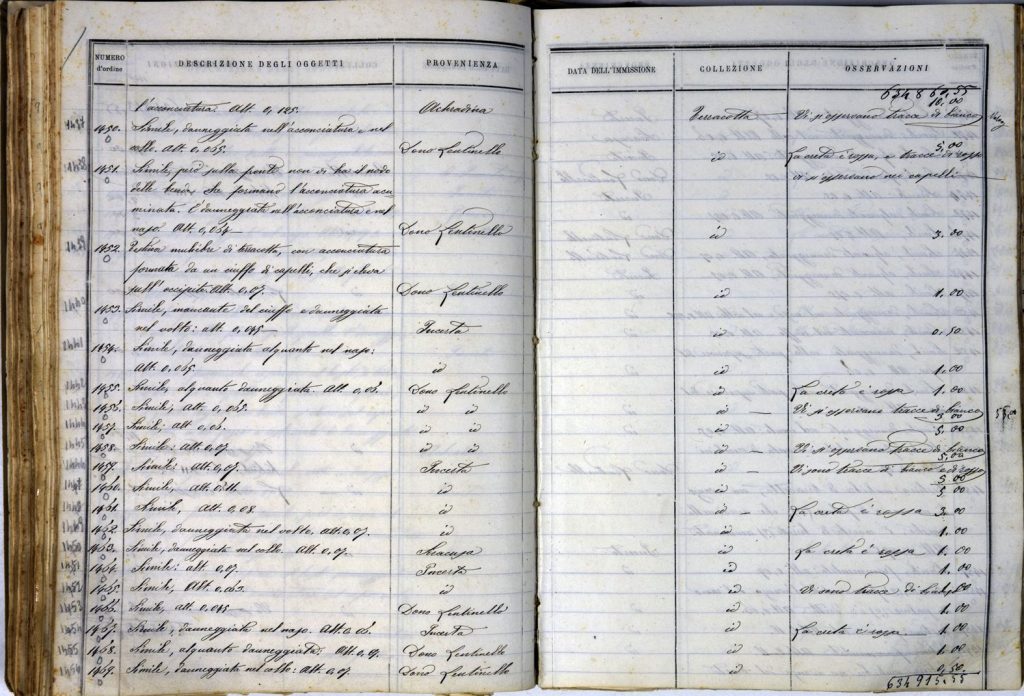 NUMERO d'ordine DESCRIZIONE DEGLI OGGETTI PROVENIENZA DATA DELL'IMMISSIONE COLLEZIONE OSSERVAZIONI
634 869,55
10,00
l'acconciatura. Alt. 0,125. Achradina Terracotta Vi si osservano tracce di bianco
1450. Simile, danneggiata nell'acconciatura e nel 5,00
collo. Alt. 0,065. Dono Lentinello id La creta è rossa, e tracce di rosso
1451. Simile, però sulla fronte non di ha il nodo si osservano nei capelli
delle che formano l'acconciatura acu
minata. È danneggiata nell'acconciatura e nel
naso. Alt. 0,054 Dono Lentinello id 3.00
1452. Testina muliebre di terracotta, con acconciatura
formata da un ciuffo di capelli, che si eleva
sull'occipite. Alt. 0,07. Dono Lentinello id 1.00
1453. Simile, mancante del ciuffo e danneggiata
nel volto: alt. 0,045 Incerta id 0,50
1454. Simile, danneggiata alquanto nel naso:
Alt. 0,065 id id 1.00
1455. Simile, alquanto danneggiata. Alt. 0,06. Dono Lentinello id La creta è rossa 1.00
1456. Simile, Alt. 0,065. id id id Vi si osservano tracce di bianco
3.00
1457. Simile: Alt. 0,06. id id id 5.00
1458. Simile: Alt. 0,07 id id id Vi si osservano tracce di bianco
5,00
1459. Simile: Alt. 0,07. Incerta id Vi sono tracce di bianco e di rosso
5.00
1460. Simile, Alt. id id 5.00
1461. Simile, Alt. 0,08 id id La creta è rossa 3.00
1462. Simile, danneggiata nel volto. Alt. 0,07. id id 1.00
1463. Simile, danneggiata nel collo. Alt. 0,07. Siracusa id La creta è rossa 1.00
1464. Simile: alt. 0,07. Incerta id 1.00
1465. Simile, Alt. 0,065. id id Vi sono tracce di
1466. Simile, alt. 0,045 Dono Lentinello id 1.00
1467. Simile, danneggiata nel naso. Alt. 0,06. Incerta id La creta è rossa 1.00
1468. Simile, alquanto danneggiata: Alt. Dono Lentinello id 1.00
1469. Simile, danneggiata nel collo: alt. 0,07 Dono Lentinello id 0,50.
634 915,55